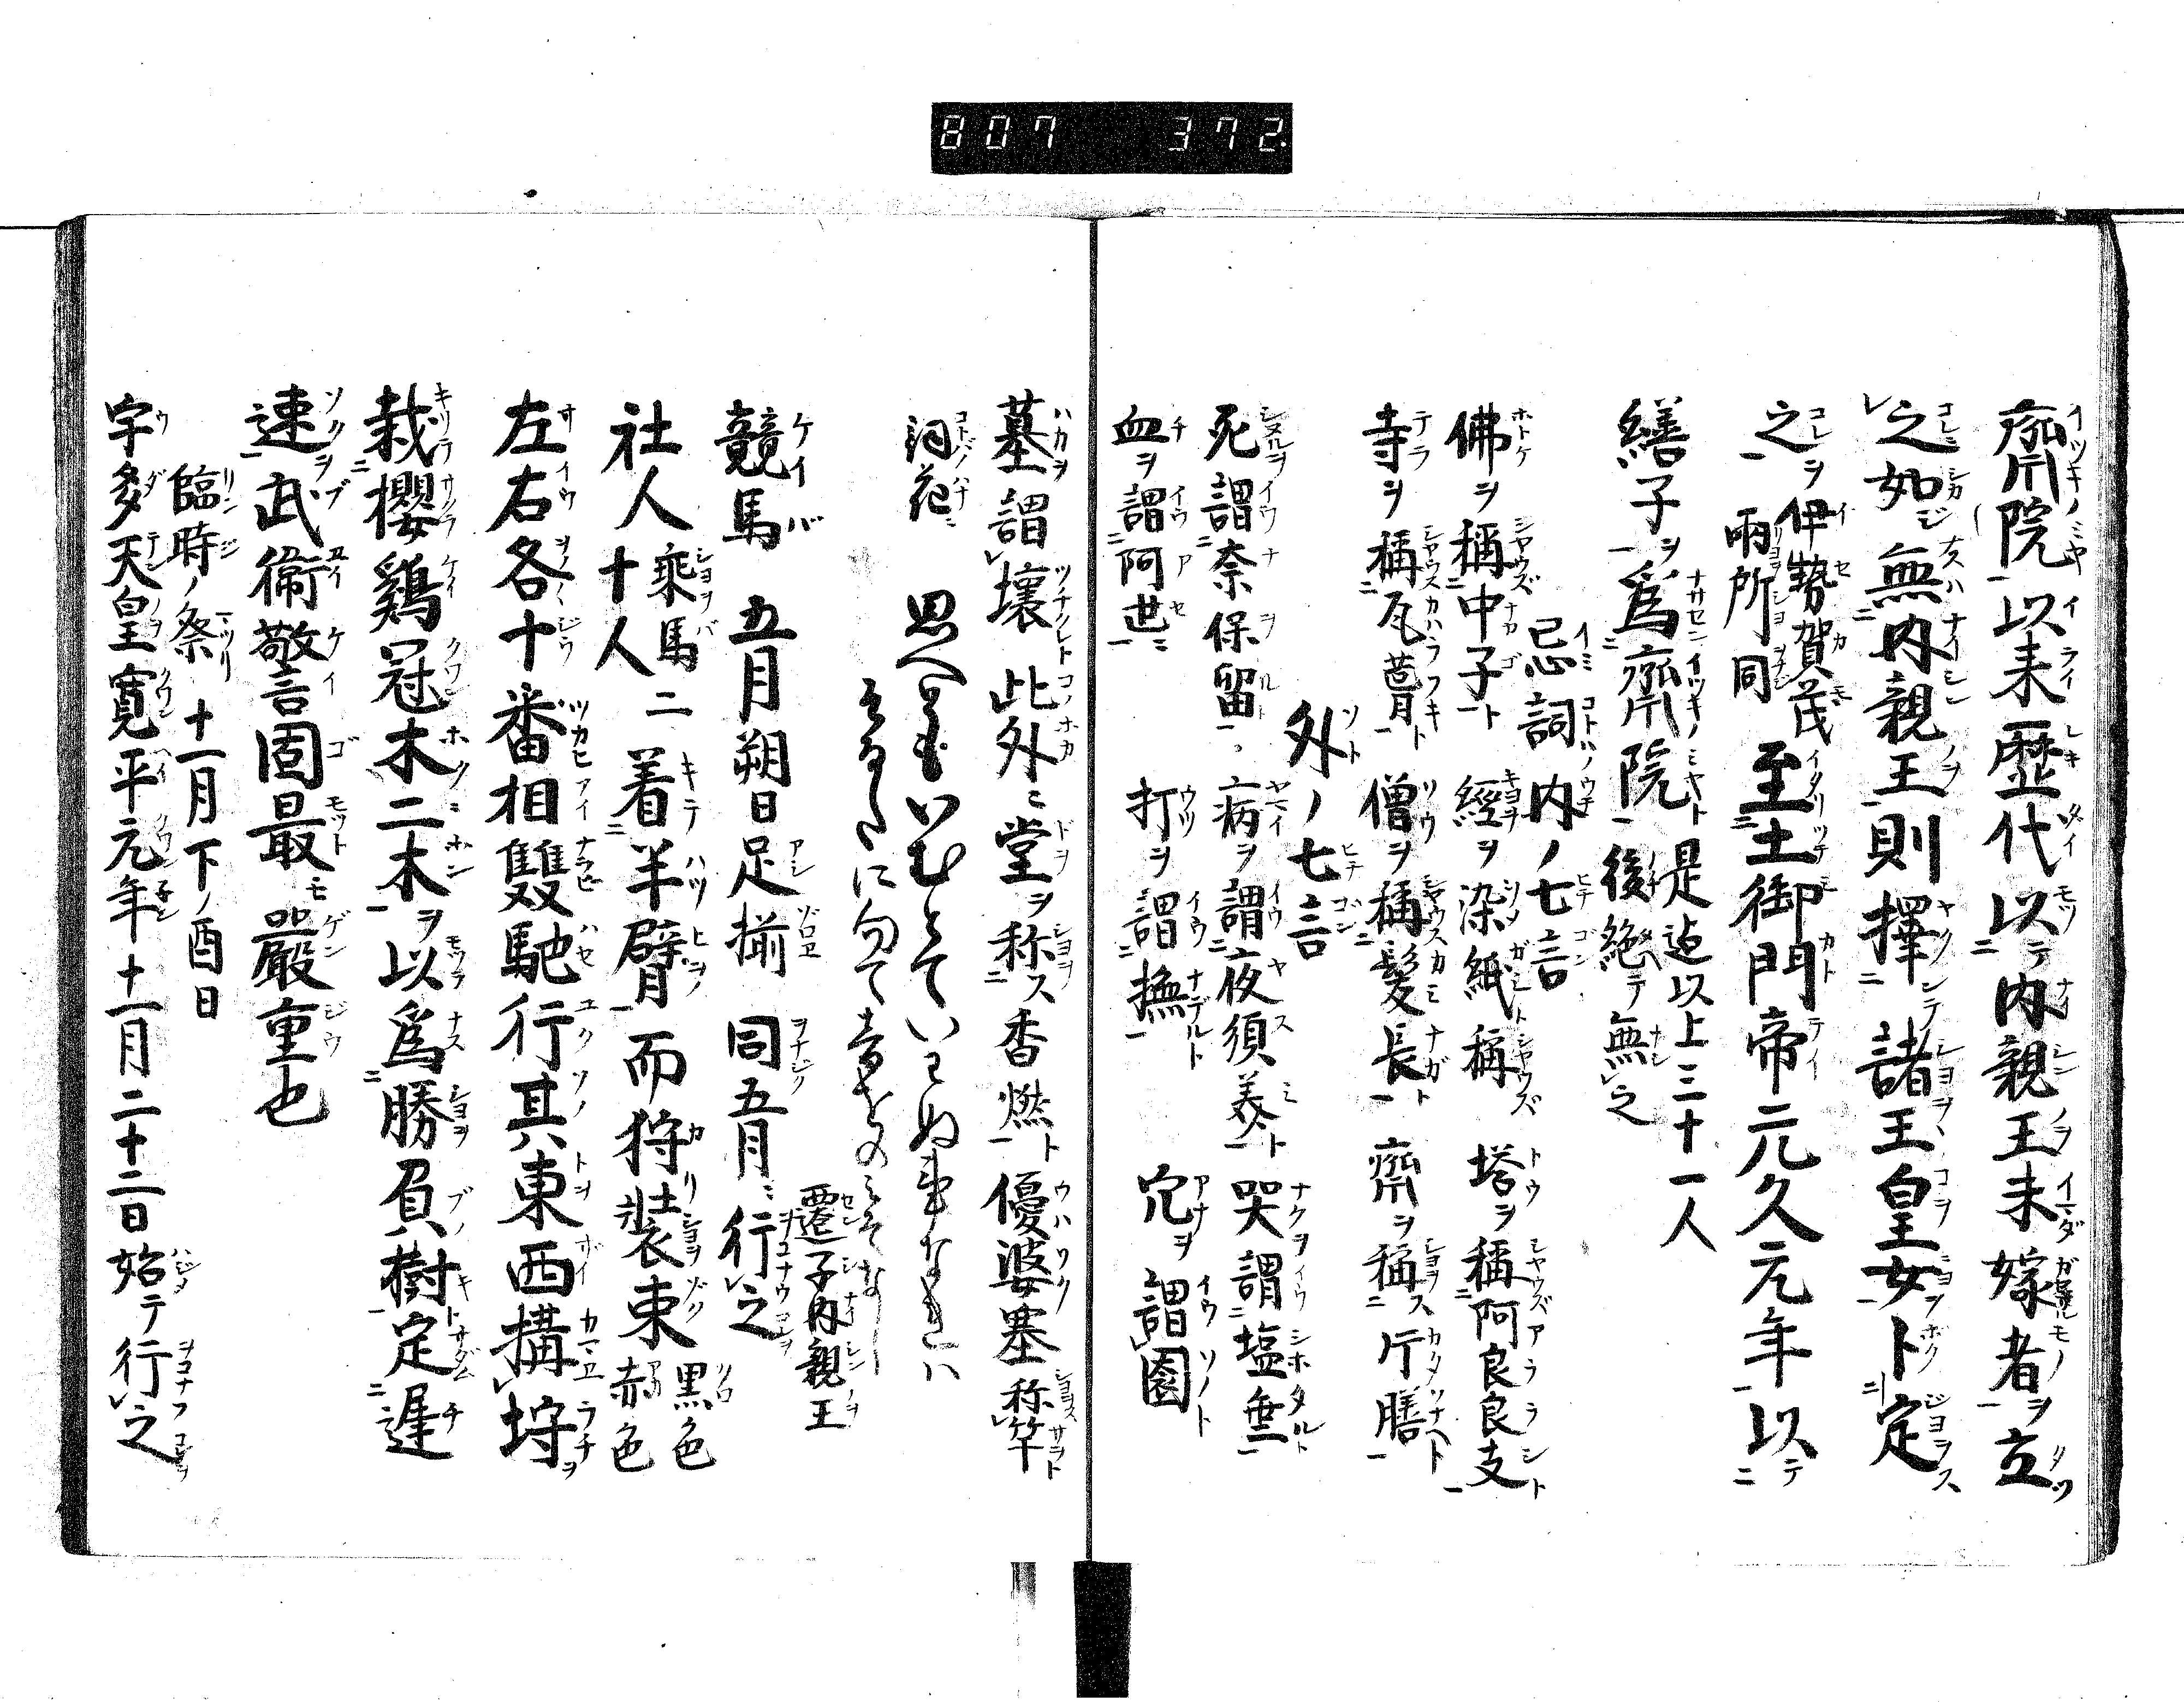 807 372.
齋院以来歴代以テ内親王未嫁者ヲ立
之如無内親王則擇諸王皇女卜定
之ヲ伊勢賀茂兩所同至土御門帝元久元年以テ
繕子ヲ爲齋院是迄以上三十一人後絶テ無之
忌詞内ノ七言
佛ヲ稱中子ト經ヲ染紙稱塔ヲ稱阿良良支
寺ヲ稱瓦葺ト僧ヲ稱髪長ト齋ヲ稱片膳ト
外ノ七言
死謂奈保留病ヲ謂夜須美ト哭謂塩垂
血ヲ謂阿世ミ打ヲ謂撫穴ヲ謂園
墓謂壤此外ニ堂ヲ称ス香燃ト優婆塞称竿
詞花 思へともいむとていはぬ事なれは
そなたに向て音をのみそなく
選子内親王
競馬 五月朔日足揃 同五月ニ行之
社人十人乘馬二着半臂而狩装束黒色赤色
左右各十番相雙馳行其東西搆埒
栽櫻鷄冠木二本ヲ以爲勝負樹定遅
速武衞敬言固最モ嚴重也
臨時ノ祭 十一月下ノ酉日
宇多天皇寛平元年十一月二十二日始テ行之